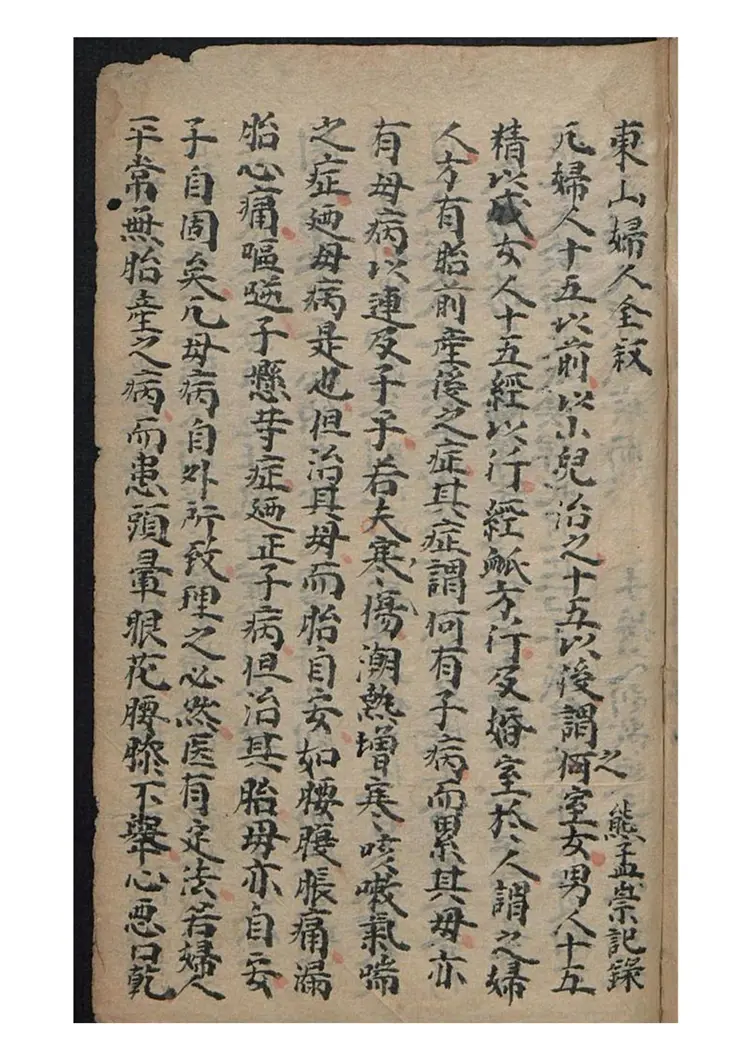 東山婦人全叙
熊孟崇記錄
凡婦人十五以前以小兒治之十五以後謂之何室女男人十五
精以成女人十五經以行經脈方行及婚室於人謂之婦
人方有胎前産後之症其症謂何有子病而累其母亦
有母病以連及于子若夫寒傷潮熱增寒咳嗽氣喘
之症廼母病是也但治其母而胎自安如腰腹脹痛漏
胎心痛嘔逆子懸等症廼正子病但治其胎母亦自安
子自固矣凡母病自外所致理之必然医有定法若婦人
平常無胎産之病而患頭暈眼花腰膝不舉心悪口乾